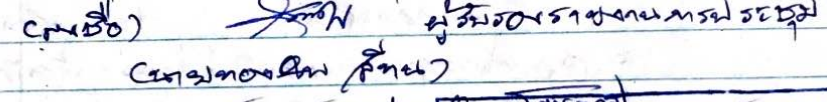 (ลงชื่อ) ผู้รับรองรายงานการประชุม
(นายทองทิพ สีทน)